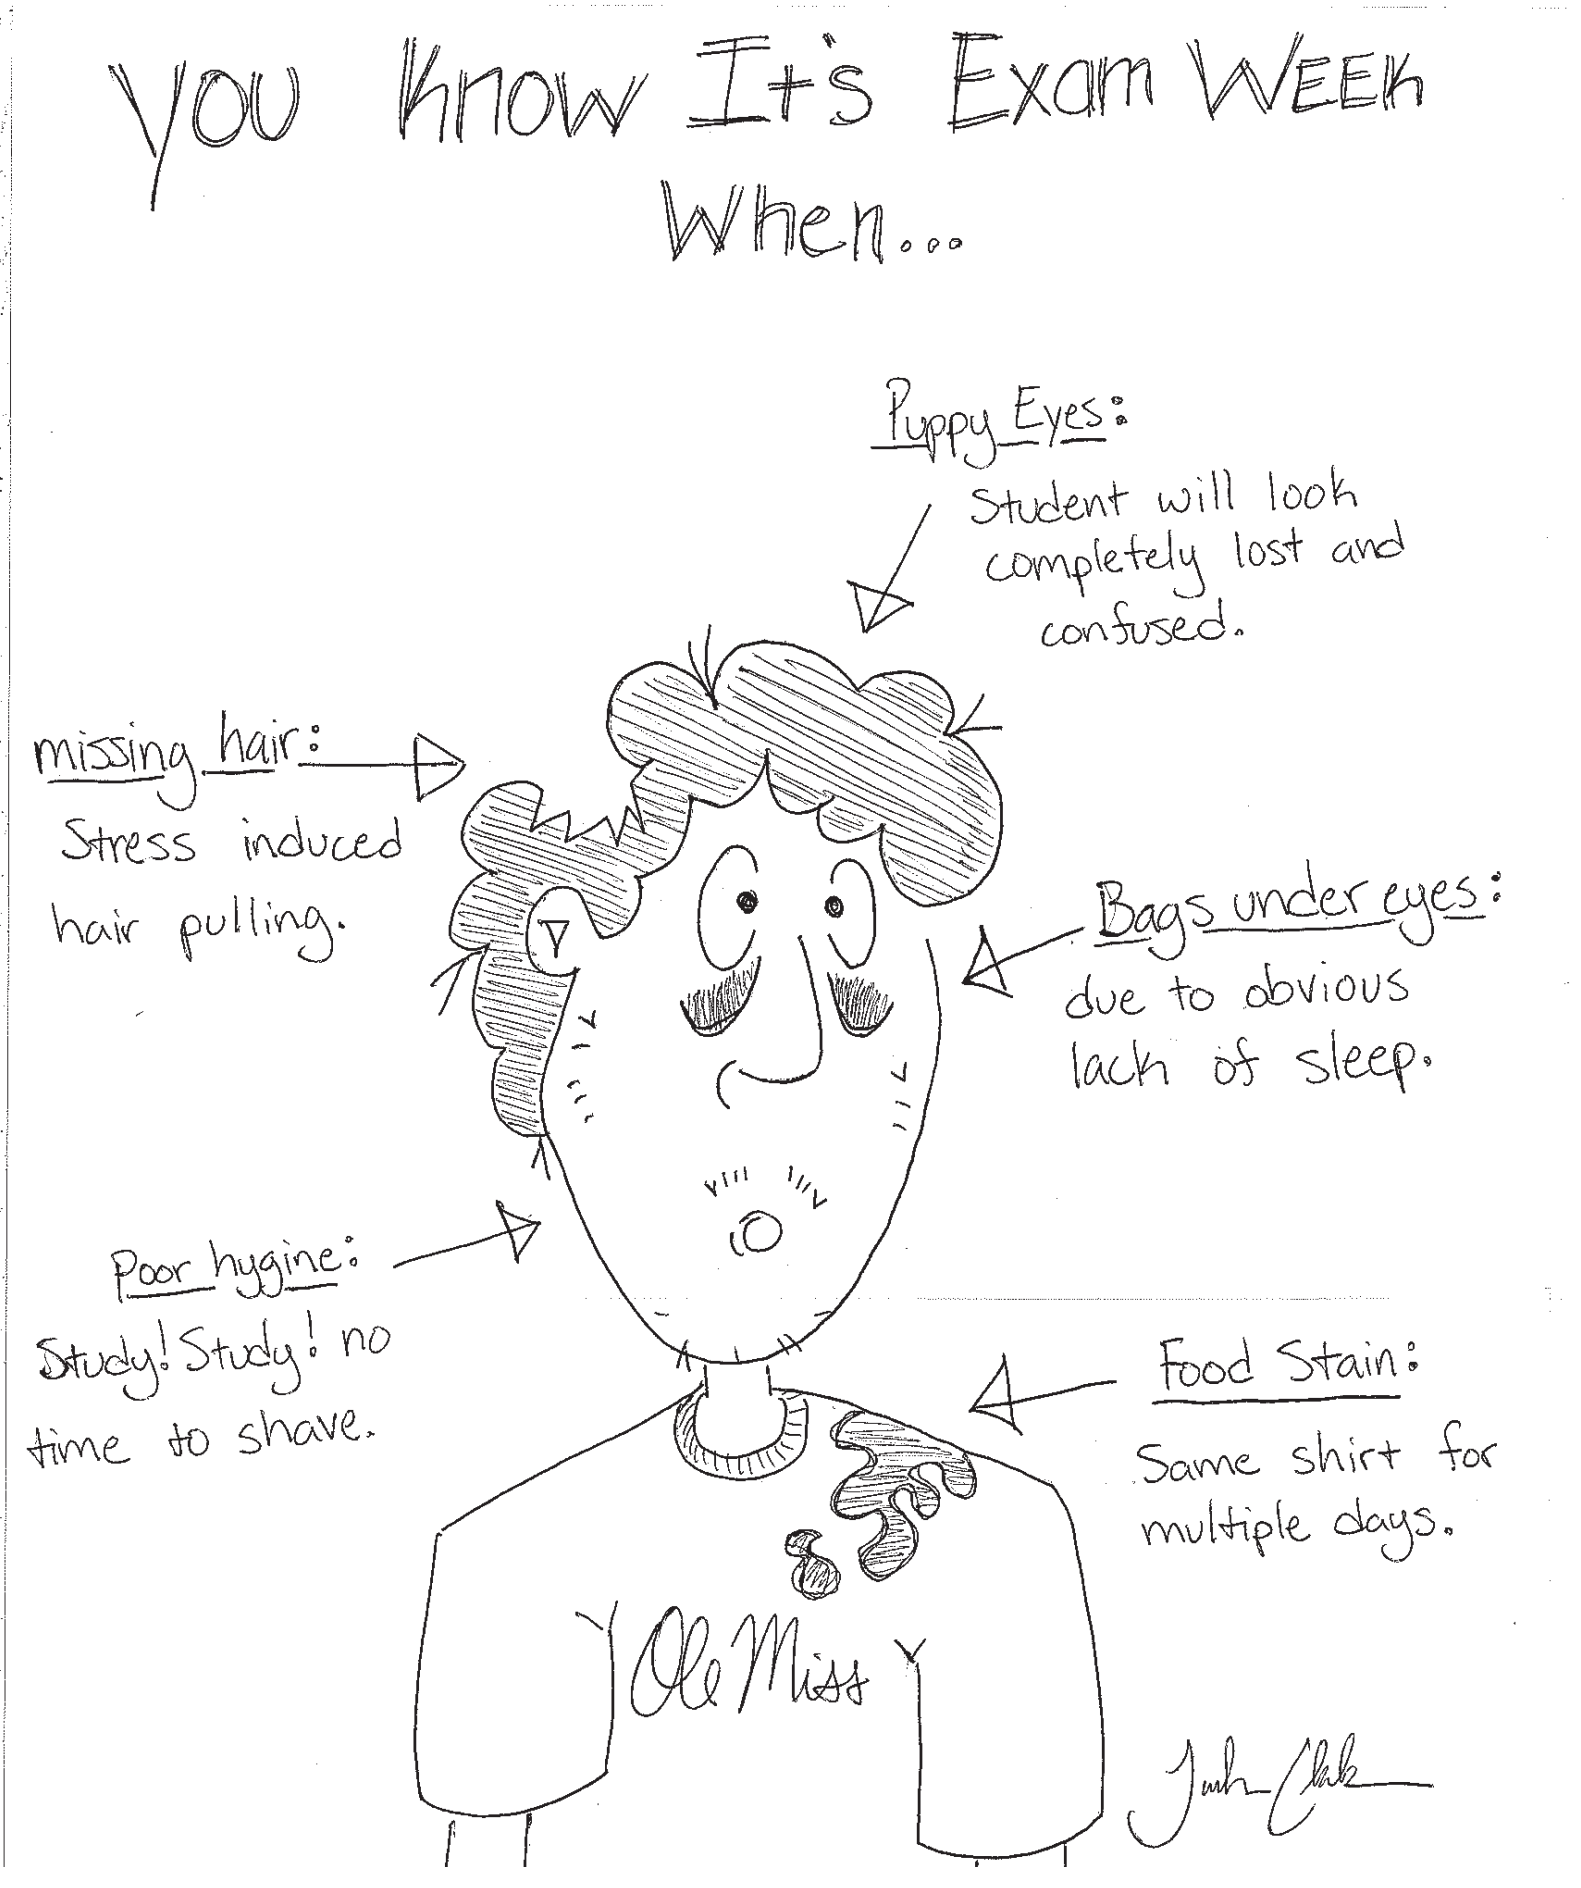 You Know It's Exam WEEK
When...
Puppy Eyes:
Student will look
completely lost and
confused.
missing hair:
Stress induced
hair pulling.
Bags under eyes:
due to obvious
lack of sleep.
Poor hygine:
Study! Study! no
time to shave.
Food Stain:
Same shirt for
multiple days.
Ole Miss